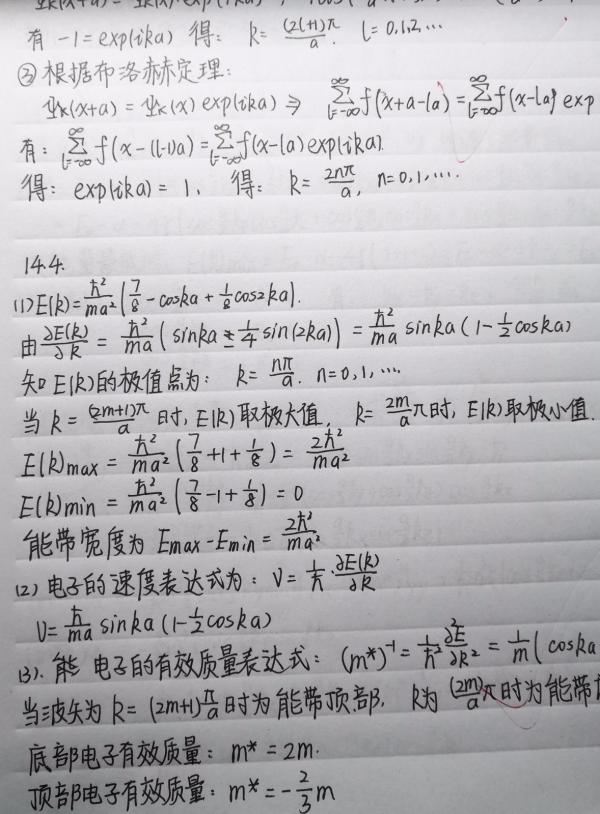 有 -1 = exp(ika) 得: k = (2l+1)π/a. l = 0,1,2,...
③根据布洛赫定理:
Ψk(x+a) = Ψk(x) exp(ika) ⇒ ∑_{l=-∞}^{∞} f(x+a-la) = ∑_{l=-∞}^{∞} f(x-la) exp
有: ∑_{l=-∞}^{∞} f(x-(l-1)a) = ∑_{l=-∞}^{∞} f(x-la) exp(ika).
得: exp(ika) = 1, 得: k = 2nπ/a, n = 0,1,....
14.4.
(1) E(k) = ħ²/ma² (7/8 - coska + 1/8 cos2ka).
由 ∂E(k)/∂k = ħ²/ma (sinka - 1/4 sin(2ka)) = ħ²/ma sinka (1 - 1/2 coska)
知 E(k)的极值点为: k = nπ/a. n = 0,1,...
当 k = (2m+1)π/a 时, E(k)取极大值, k = 2m/a π时, E(k)取极小值.
E(k)max = ħ²/ma² (7/8 + 1 + 1/8) = 2ħ²/ma²
E(k)min = ħ²/ma² (7/8 - 1 + 1/8) = 0
能带宽度为 Emax - Emin = 2ħ²/ma²
(2) 电子的速度表达式为: V = 1/ħ · ∂E(k)/∂k
V = ħ/ma sinka (1 - 1/2 coska)
(3). 能 电子的有效质量表达式: (m*)⁻¹ = 1/ħ² ∂²E/∂k² = 1/m (coska
当波矢为 k = (2m+1)π/a 时为能带顶部, k为 (2m)/a π时为能带
底部电子有效质量: m* = 2m.
顶部电子有效质量: m* = -2/3 m